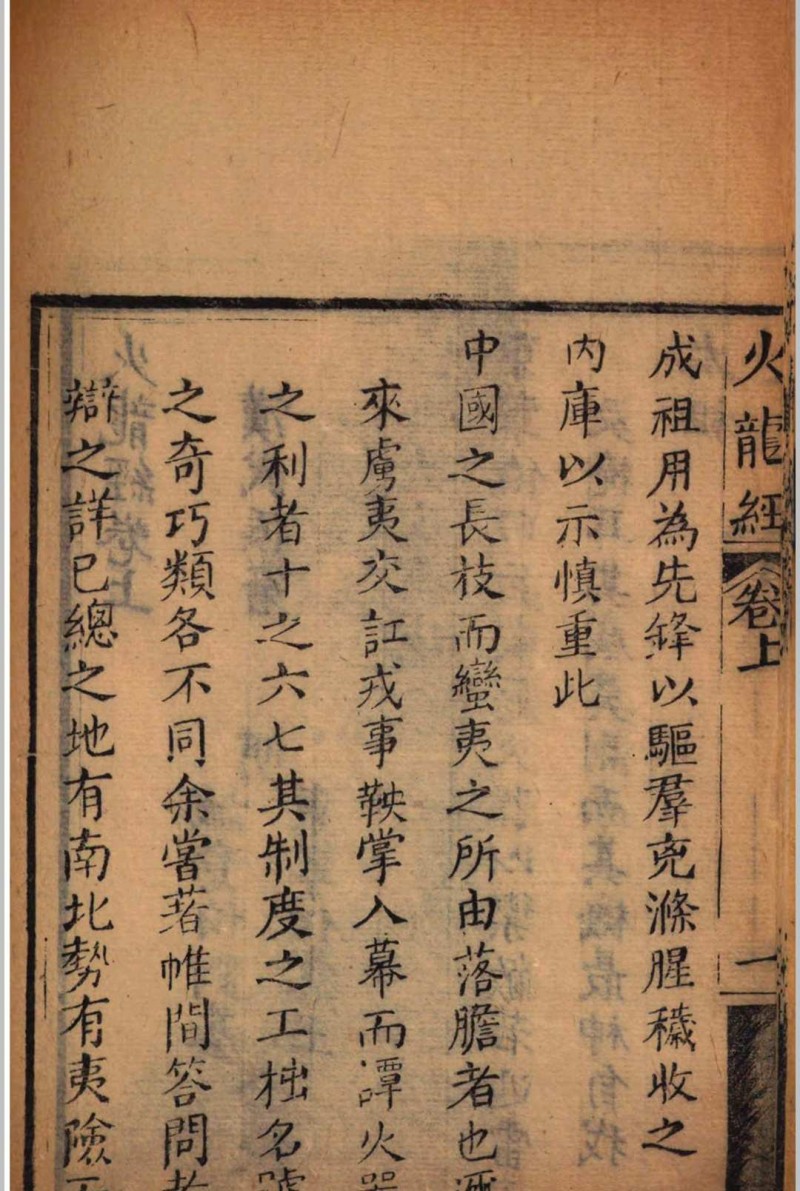 火龍經 卷上 一
成祖用為先鋒以驅羣兇滌腥穢收之
內庫以示慎重此
中國之長技而蠻夷之所由落膽者也
來虜夷交訌戎事鞅掌入幕而譚火器
之利者十之六七其制度之工拙名號
之奇巧類各不同余嘗著帷間答問
辯之詳已總之地有南北勢有夷險